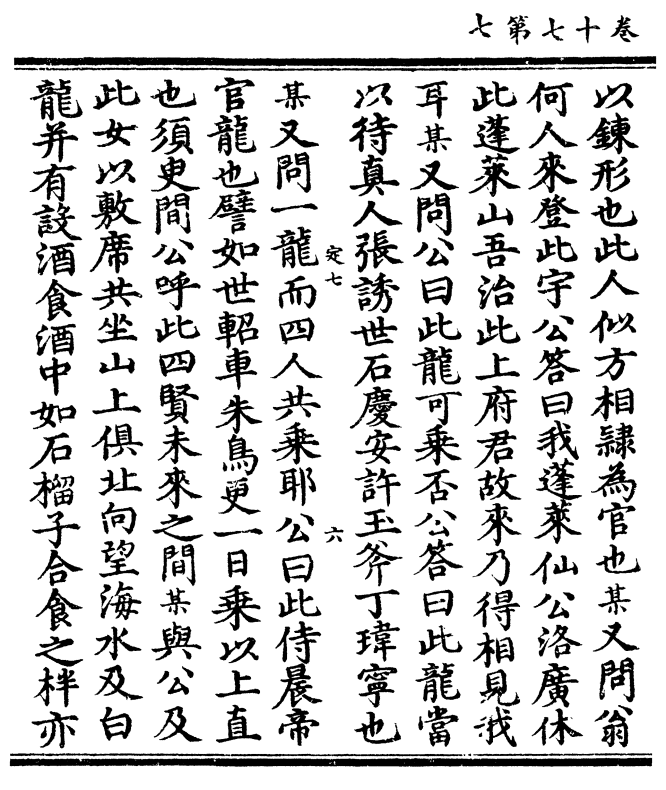 卷十七第七
以鍊形也此人似方相隷為官也某又問翁
何人來登此宇公答曰我蓬萊仙公洛廣休
此蓬萊山吾治此上府君故來乃得相見我
耳某又問公曰此龍可乗否公答曰此龍當
以待真人張誘世石慶安許玉斧丁瑋寧也
定七 六
某又問一龍而四人共乗耶公曰此侍晨帝
官龍也譬如世軺車朱鳥更一日乗以上直
也須臾間公呼此四賢未來之間某與公及
此女以敷席共坐山上俱北向望海水及白
龍并有設酒食酒中如石榴子合食之柈亦